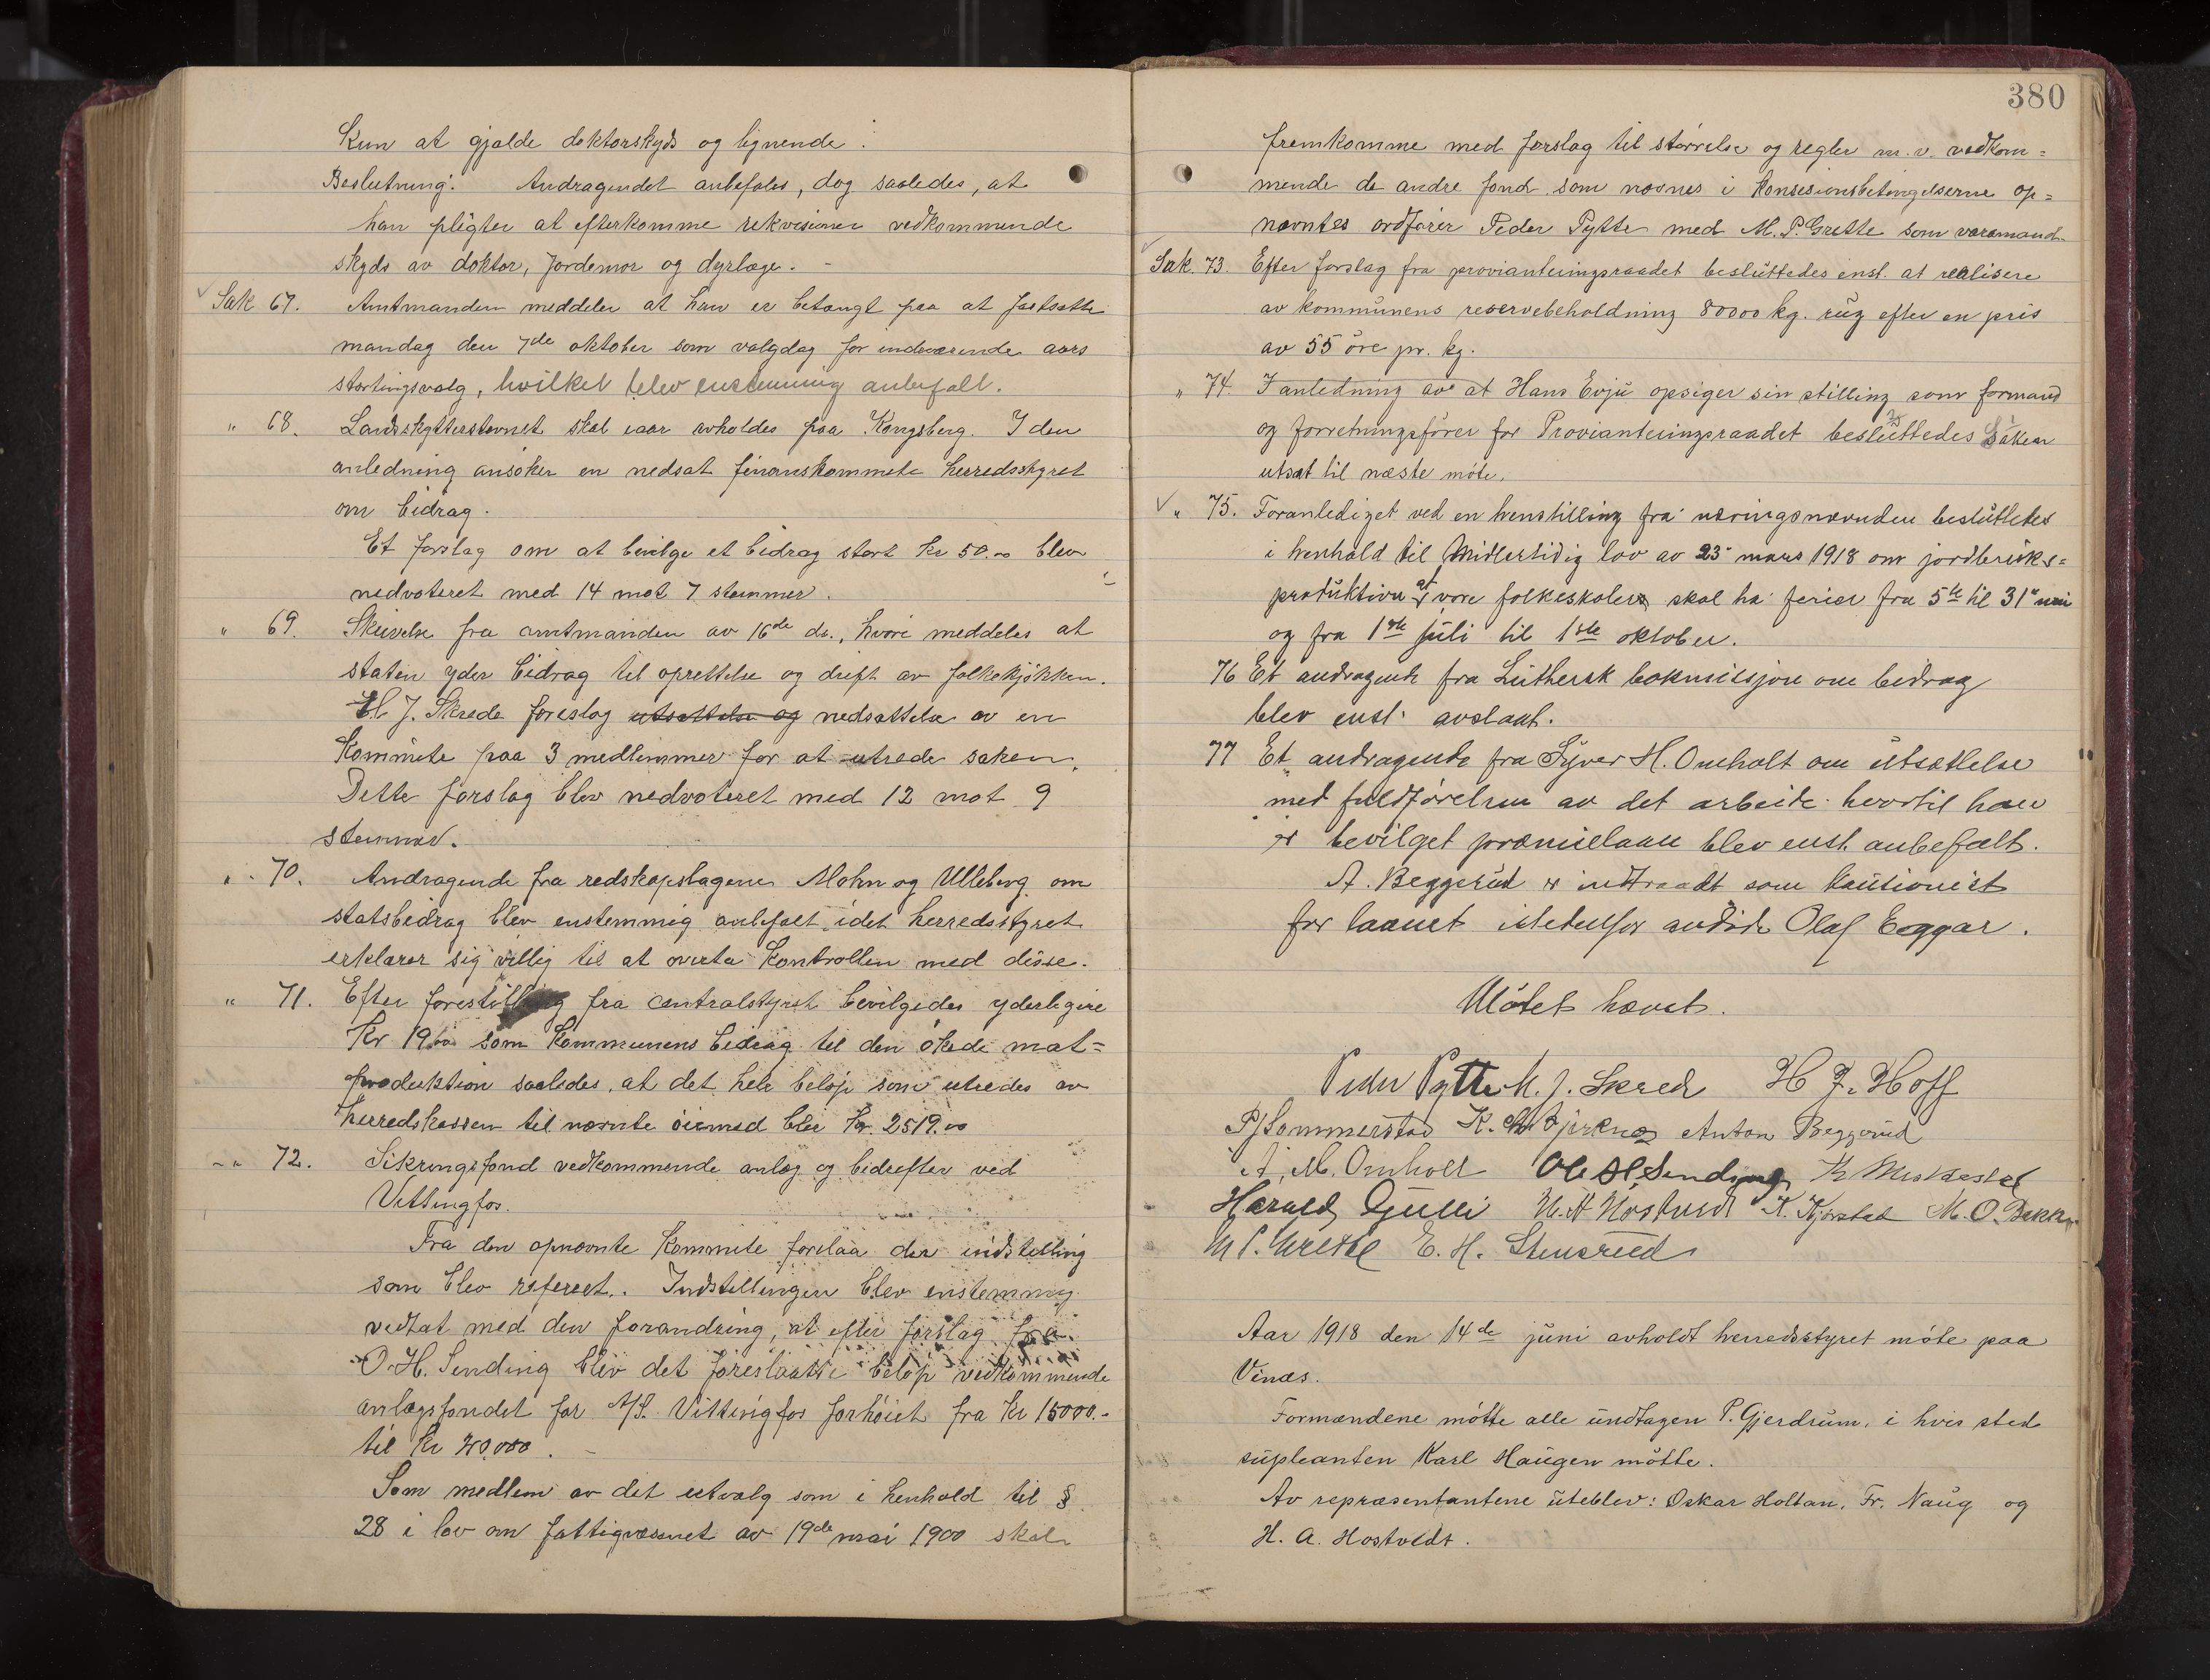 Kun at gjælde doktorskyds og lignende.
Beslutning: Andragendet anbefales, dog saaledes, at
han pligter at efterkomme rekvisioner vedkommende
skyds av doktor, Jordemor og dyrlæge. -
Sak 67. Amtmanden meddeler at han er betængt paa at fastsætte
mandag den 7de oktober som valgdag for indeværende aars
stortingsvalg, hvilket blev enstemmig anbefalt.
" 68. Landsskytterstevnet skal iaar avholdes paa Kongsberg. I den
anledning ansøker en nedsat finanskommite herredsstyret
om bidrag.
Et forslag om at bevilge et bidrag stort kr 50.00 blev
nedvoteret med 14 mot 7 stemmer.
" 69. Skrivelse fra amtmanden av 16de ds., hvori meddeles at
staten yder bidrag til oprettelse og drift av folkekjøkken.
J. Skrede foreslog utsættelse og nedsættelse av en
Kommite paa 3 medlemmer for at utrede saken.
Dette forslag blev nedvoteret med 12 mot 9
stemmer.
" 70. Andragende fra redskapslagene Mohn og Ulleberg om
statsbidrag blev enstemmig anbefalt idet herredsstyret
erklærer sig villig til at overta kontrollen med disse.
" 71. Efter forestilling fra centralstyret bevilgedes yderligere
Kr som Kommunens bidrag til den økede mat=
produktion saaledes, at det hele beløp som utredes av
herredskassen til nævnte øiemed blir kr. 2519.00
" 72. Sikringsfond vedkommende anlæg og bedrefter ved
Vittingfos.
Fra den opnævnte Kommite forelaa der indstilling
som blev referert. Indstillingen blev enstemmig
vedtat med den forandring, at efter forslag fra
O. H. Sending blev det foreslaatte beløp vedkommende
anlægsfondet for A/S. Vittingfos forhøiet fra kr 15000.-
til kr 20,000. -
Som medlem av det utvalg som i henhold til §
28 i lov om fattigvæsenet av 19de mai 1900 skal
380
fremkomme med forslag til størrelse og regler m. v. vedkom=
mende de andre fond som nævnes i Konsesionsbetingelserne op=
nævntes ordfører Peder Pytte med M. P. Grette som varamand.
Sak. 73. Efter forslag fra provianteringsraadet besluttedes enst. at realisere
av kommunens reservebeholdning 80000 kg. rug efter en pris
av 55 øre pr. kg.
" 74. I anledning av at Hans Evju opsiger sin stilling som formand
og forretningsfører for Provianteringsraadet besluttedes saken
utsat til næste møte.
" 75. Foranlediget ved en henstilling fra næringsnævnden besluttedes
i henhold til Midlertidig lov av 23 mars 1918 om jordbruks=
produktion at vore folkeskoler skal ha ferier fra 5te til 31te mai
og fra 1ste juli til 1ste oktober.
76 Et andragende fra Luthersk bokmisjon om bidrag
blev enst. avslaat.
77 Et andragende fra Syver H. Omholt om utsættelse
med fuldførelsen av det arbeide hvortil han
er bevilget præmielaan blev enst. anbefalt.
A. Beggerud er indtraadt som kautionist
for laanet istedenfor avdøde Olaf Eggar.
Møtet hævet.
Peder Pytte J. Skrede H J. Hoff
P J Sommerstad K. Bjørknes Anton Beggerud
A. M. Omholt Ole H. Sending
Harald Gulli H. A. Hostvedt K. Kjørstad M. O. Bakke
M P. Grette E. H. Stensrud
Aar 1918 den 14de juni avholdt herredsstyret møte paa
Vinæs.
Formændene møtte alle undtagen P. Gjerdrum, i hvis sted
supleanten Karl Haugen møtte.
Av repræsentantene uteblev: Oskar Holtan, Fr. Naug og
H. A. Hostvedt.